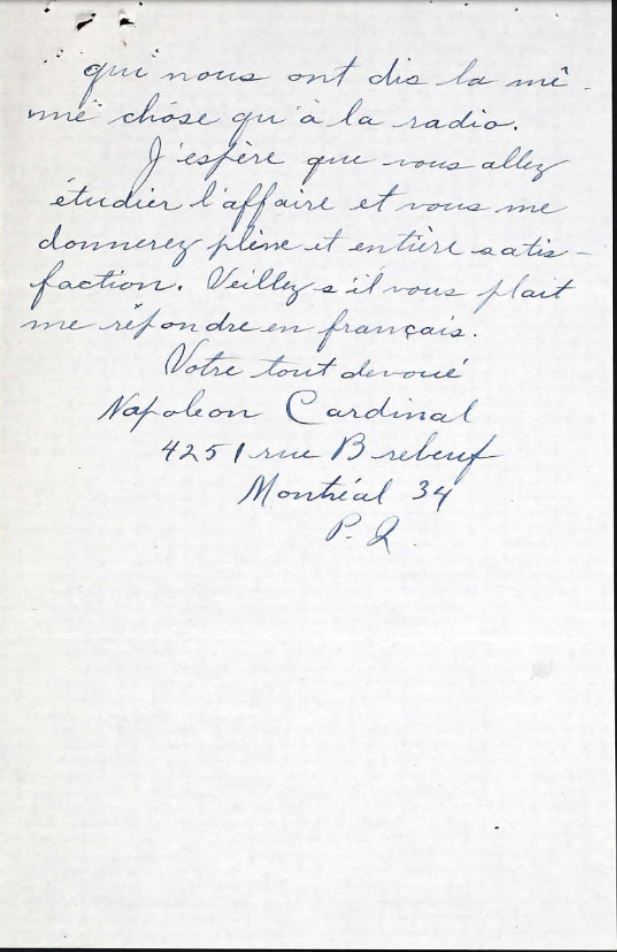 qui nous ont dis la mê-
me chose qu'à la radio.
J'espère que vous allez
étudier l'affaire et vous me
donnerez pleine et entière satis-
faction. Veillez s'il vous plait
me répondre en français.
Votre tout devoué
Napoleon Cardinal
4251 rue Brebeuf
Montréal 34
P. Q.